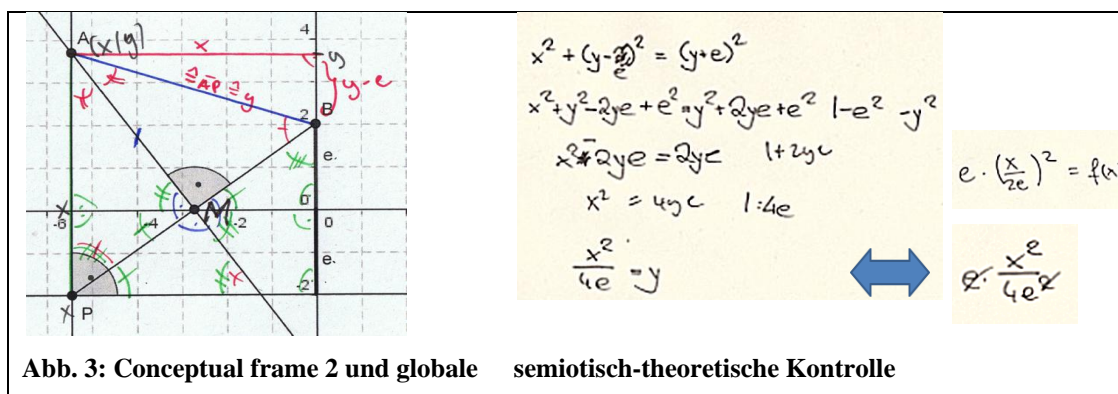 A (x/y)
x
4
y
≙ AP ≙ y
y-e
B
2
e.
M
0
-6
x
-4
-2
0
e.
-2
x P
x² + (y-e)² = (y+e)²
x²+y²-2ye+e² = y²+2ye+e² |-e² -y²
x²-2ye = 2ye |+2ye
x² = 4ye |:4e
x²/4e = y
e·(x/2e)² = f(x
e·x²/4e²
Abb. 3: Conceptual frame 2 und globale semiotisch-theoretische Kontrolle